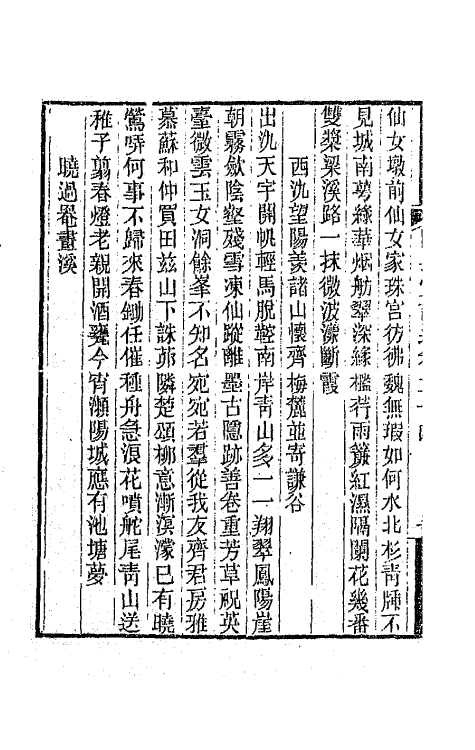 仙女墩前仙女家珠宮彷彿魏無瑕如何水北杉靑牐不
見城南萼綠華烟舫翠深緣檻荇雨簾紅濕隔闌花幾番
雙槳梁溪路一抹微波漾斷霞
西氿望陽羨諸山懷齊梅麓並寄謙谷
出氿天宇開帆輕馬脫鞚南岸靑山多一一翔翠鳳陽崖
朝霧斂陰壑殘雪凍仙蹤離墨古隱跡善卷重芳草祝英
臺微雲玉女洞餘峯不知名宛宛若羣從我友齊君房雅
慕蘇和仲買田玆山下誅茆隣楚頌柳意漸溟濛已有曉
鶯哢何事不歸來春鋤任催種舟急浪花噴舵尾靑山送
稚子翦春燈老親開酒甕今宵瀨陽城應有池塘夢
曉過罨畫溪